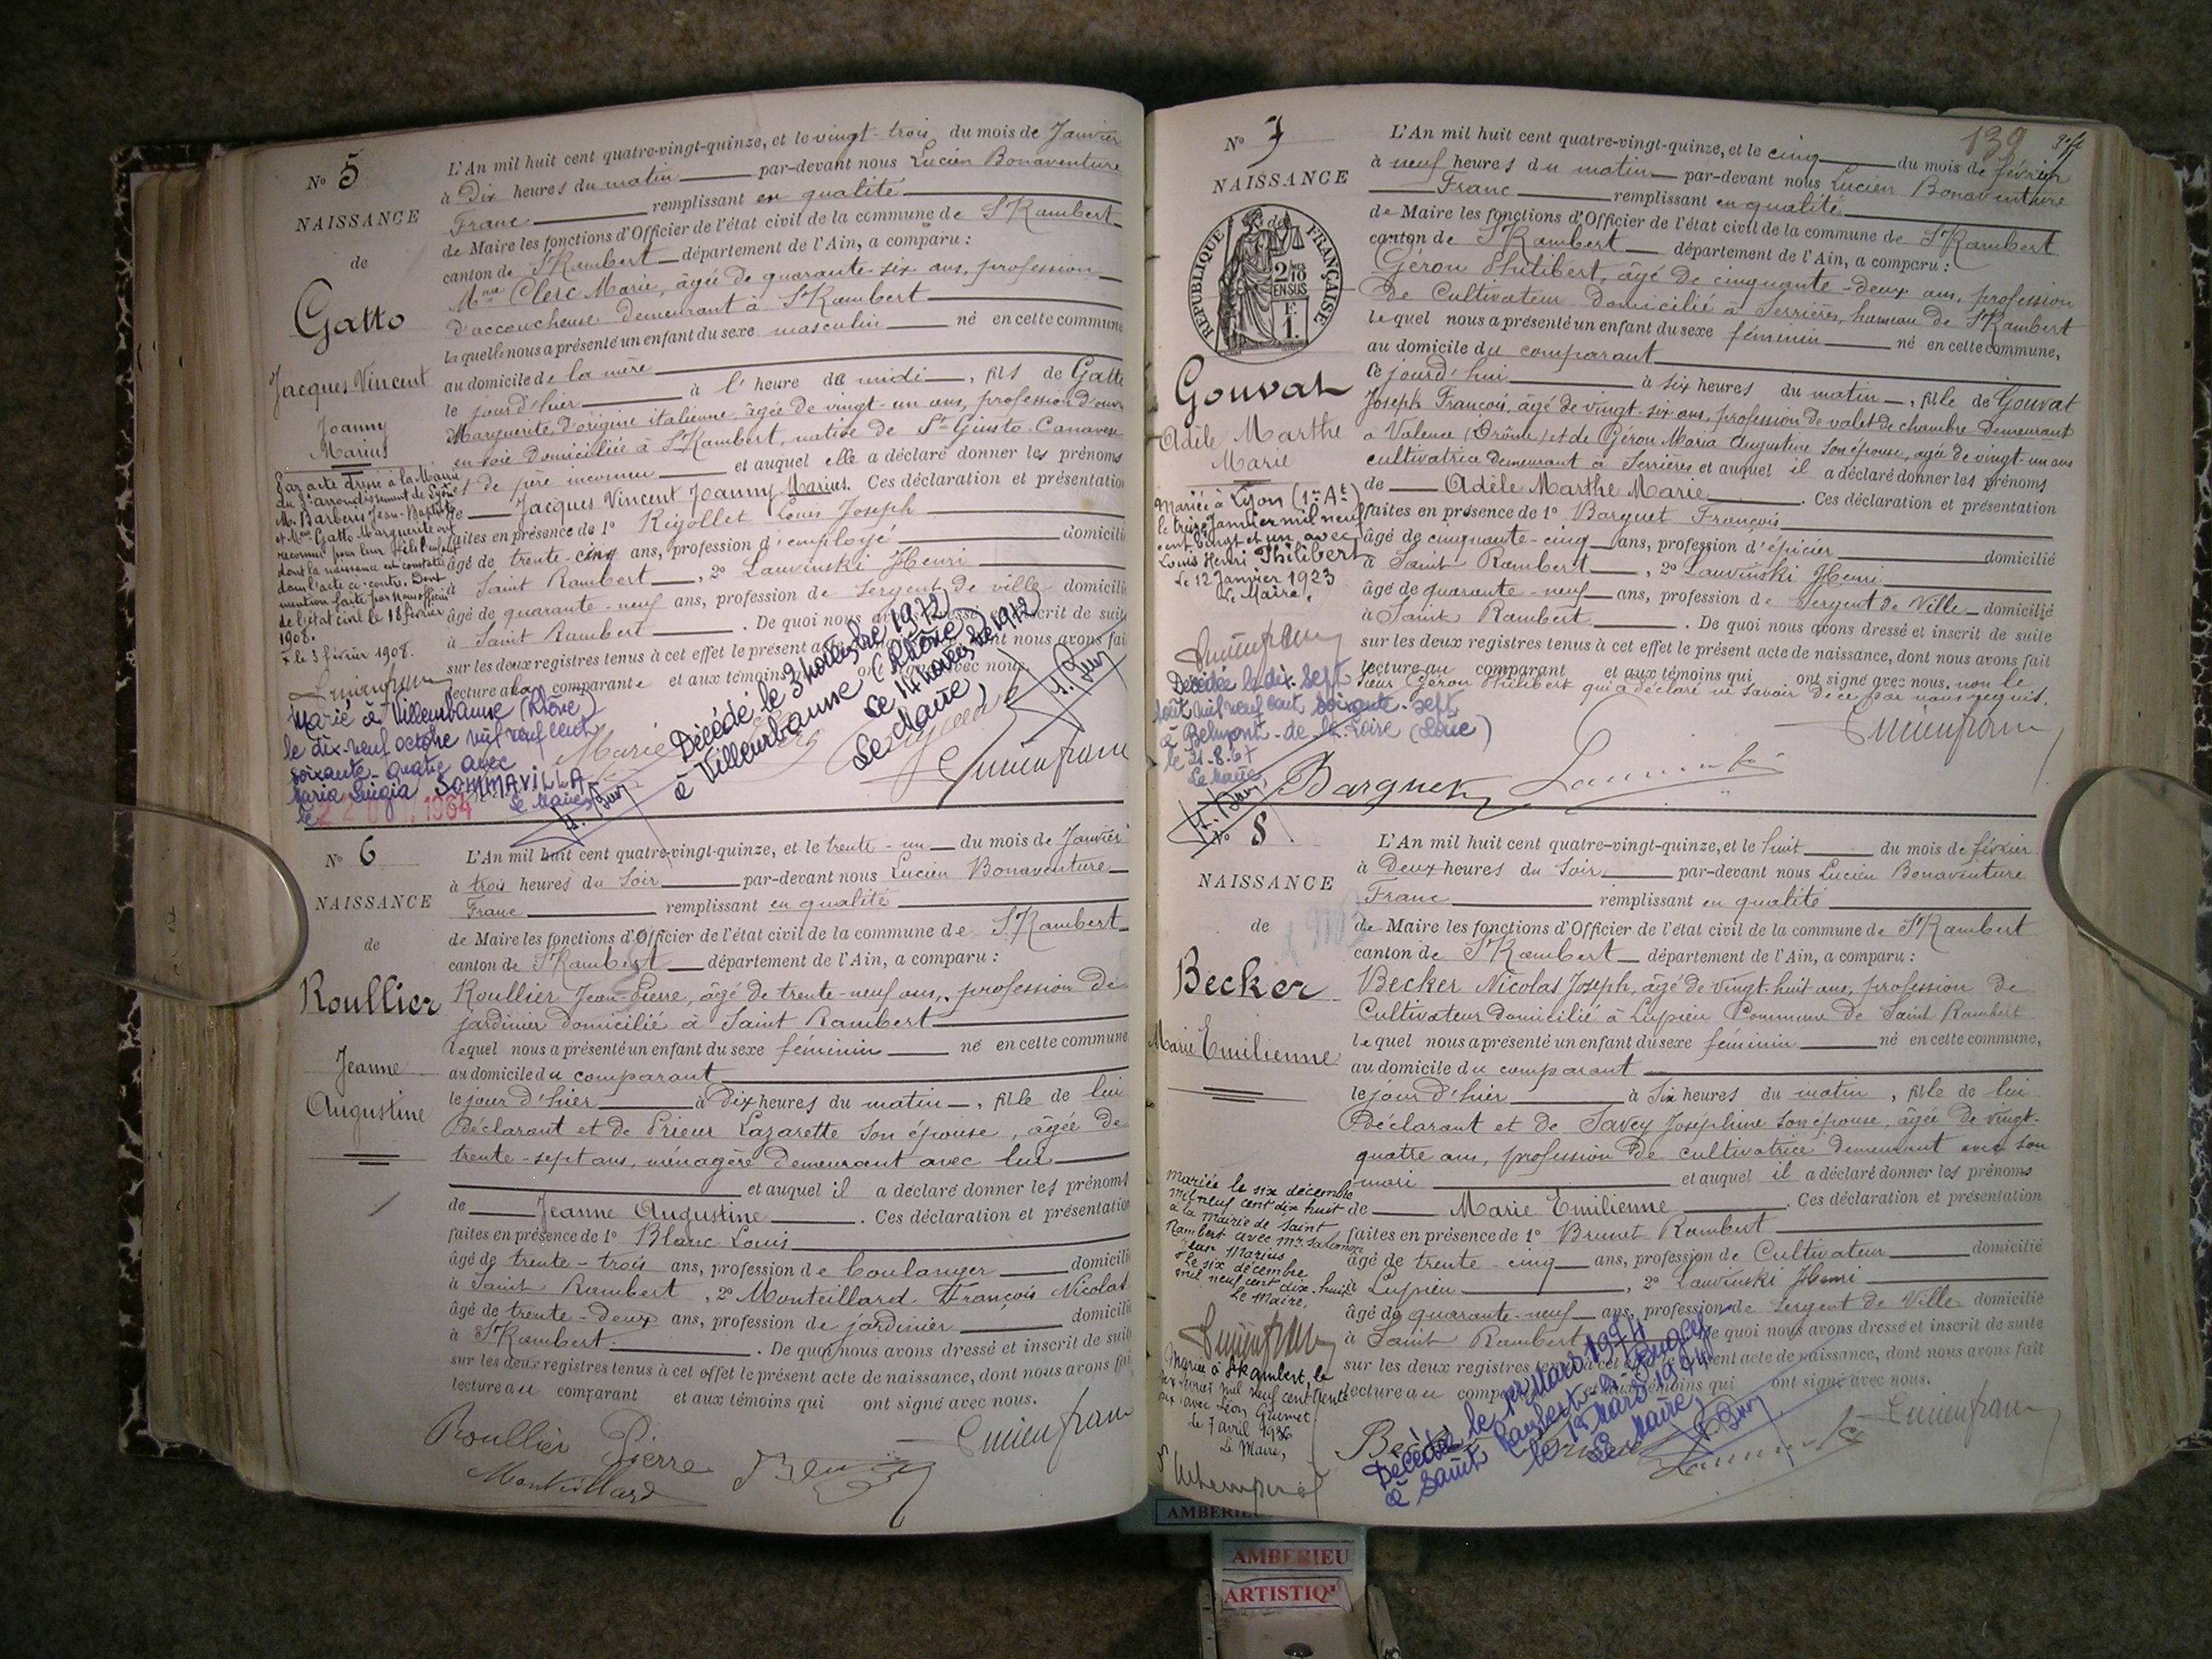 N° 5
NAISSANCE
de
Gatto
Jacques Vincent
Joanny
Marius
Par acte dressé à la Mairie
du 3e arrondissement de Lyon
M. Barberis Jean-Baptiste
et Mme Gatto Marguerite ont
reconnu pour leur fils l'enfant
dont la naissance est constatée
dans l'acte ci-contre. Dont
mention faite par Nous officier
de l'état civil le 18 février
1908.
le 3 février 1908.
Marié à Villeurbanne (Rhône)
le dix-neuf octobre mil neuf cent
soixante-quatre avec
Maria Luigia SOMMAVILLA
Le Maire,
le 22 1964
L'An mil huit cent quatre-vingt-quinze, et le vingt-trois du mois de Janvier
à Dix heures du matin par-devant nous Lucien Bonaventure
Franc remplissant en qualité
de Maire les fonctions d'Officier de l'état civil de la commune de St Rambert
canton de St Rambert département de l'Ain, a comparu :
Mme Clerc Marie, âgée de quarante-six ans, profession
d'accoucheuse demeurant à St Rambert
laquelle nous a présenté un enfant du sexe masculin né en cette commune
au domicile de la mère
le jour d'hier à l'heure de midi, fils de Gatto
Marguerite, d'origine italienne, âgée de vingt-un ans, profession d'ouvr
en soie domiciliée à St Rambert, native de St Giusto Canavese
et de père inconnu et auquel elle a déclaré donner les prénoms
de Jacques Vincent Joanny Marius. Ces déclaration et présentation
faites en présence de 1° Rigollet Louis Joseph
âgé de trente-cinq ans, profession d'employé domicilié
à Saint Rambert, 2° Lauvinski Henri
âgé de quarante-neuf ans, profession de Sergent de ville domicilié
à Saint Rambert. De quoi nous avons dressé et inscrit de suite
sur les deux registres tenus à cet effet le présent acte nt nous avons fai
lecture à la comparante et aux témoins ont avec nous.
Décédé le 3 novembre 1972
à Villeurbanne (Rhône)
Le 14 novembre 1972
Le Maire,
N° 6
NAISSANCE
de
Roullier
Jeanne
Augustine
L'An mil huit cent quatre-vingt-quinze, et le trente-un du mois de Janvier
à trois heures du Soir par-devant nous Lucien Bonaventure
Franc remplissant en qualité
de Maire les fonctions d'Officier de l'état civil de la commune de St Rambert
canton de St Rambert département de l'Ain, a comparu :
Roullier Jean-Pierre, âgé de trente-neuf ans, profession de
jardinier domicilié à Saint Rambert
lequel nous a présenté un enfant du sexe féminin né en cette commune
au domicile du comparant
le jour d'hier à Dix heures du matin, fille de lui
Déclarant et de Prieur Lazarette son épouse, âgée de
trente-sept ans, ménagère demeurant avec lui
et auquel il a déclaré donner les prénoms
de Jeanne Augustine. Ces déclaration et présentation
faites en présence de 1° Blanc Louis
âgé de trente-trois ans, profession de boulanger domicilié
à Saint Rambert, 2° Monteillard François Nicolas
âgé de trente-deux ans, profession de jardinier domicilié
à St Rambert. De quoi nous avons dressé et inscrit de suite
sur les deux registres tenus à cet effet le présent acte de naissance, dont nous avons fai
lecture au comparant et aux témoins qui ont signé avec nous.
Roullier Pierre
Monteillard
N° 7
NAISSANCE
RÉPUBLIQUE FRANÇAISE
2/10
EN SUS
F.
1.
Gouvat
Adèle Marthe
Marie
Mariée à Lyon (1er At)
le treize Janvier mil neuf
cent vingt et un avec
Louis Henri Philibert
Le 12 Janvier 1923
Le Maire,
Décédée le dix-sept
août mil neuf cent soixante-sept
à Belmont-de-la-Loire (Loire)
le 21-8-67
Le Maire,
139
L'An mil huit cent quatre-vingt-quinze, et le cinq du mois de février
à neuf heures du matin par-devant nous Lucien Bonaventure
Franc remplissant en qualité
de Maire les fonctions d'Officier de l'état civil de la commune de St Rambert
canton de St Rambert département de l'Ain, a comparu :
Géron Philibert, âgé de cinquante-deux ans, profession
de Cultivateur domicilié à Serrières, hameau de St Rambert
lequel nous a présenté un enfant du sexe féminin né en cette commune,
au domicile du comparant
ce jourd'hui à six heures du matin, fille de Gouvat
Joseph François, âgé de vingt-six ans, profession de valet de chambre demeurant
à Valence (Drôme) et de Géron Maria Augustine son épouse, âgée de vingt-un ans
cultivatrice demeurant à Serrières et auquel il a déclaré donner les prénoms
de Adèle Marthe Marie. Ces déclaration et présentation
faites en présence de 1° Barquet François
âgé de cinquante-cinq ans, profession d'épicier domicilié
à Saint Rambert, 2° Lauvinski Henri
âgé de quarante-neuf ans, profession de Sergent de Ville domicilié
à Saint Rambert. De quoi nous avons dressé et inscrit de suite
sur les deux registres tenus à cet effet le présent acte de naissance, dont nous avons fait
lecture au comparant et aux témoins qui ont signé avec nous, non le
sieur Géron Philibert qui a déclaré ne savoir de ce par nous requis.
Barquet
N° 8
NAISSANCE
de
Becker
Marie Emilienne
Mariée le six décembre
mil neuf cent dix huit
à la mairie de Saint
Rambert avec Mr. Salomon
Jean Marius
Le six décembre
mil neuf cent dix-huit
Le Maire,
Mariée à St Rambert, le
six février mil neuf cent trente
six avec Léon Grumet
Le 7 avril 1936
Le Maire,
L'An mil huit cent quatre-vingt-quinze, et le huit du mois de février
à Deux heures du Soir par-devant nous Lucien Bonaventure
Franc remplissant en qualité
de Maire les fonctions d'Officier de l'état civil de la commune de St Rambert
canton de St Rambert département de l'Ain, a comparu :
Becker Nicolas Joseph, âgé de vingt-huit ans, profession de
Cultivateur domicilié à Lupieu Commune de Saint Rambert
lequel nous a présenté un enfant du sexe féminin né en cette commune,
au domicile du comparant
le jour d'hier à Six heures du matin, fille de lui
Déclarant et de Savey Joséphine son épouse, âgée de vingt-
quatre ans, profession de cultivatrice demeurant avec son
mari et auquel il a déclaré donner les prénoms
de Marie Emilienne. Ces déclaration et présentation
faites en présence de 1° Brunet Rambert
âgé de trente-cinq ans, profession de Cultivateur domicilié
à Lupieu, 2° Lauvinski Henri
âgé de quarante-neuf ans, profession de Sergent de Ville domicilié
à Saint Rambert. De quoi nous avons dressé et inscrit de suite
sur les deux registres tenus à cet effet le présent acte de naissance, dont nous avons fait
lecture au comparant et aux témoins qui ont signé avec nous.
Décédée le 1er Mars 1974
à Saint Rambert-en-Bugey
le 1er Mars 1974
Le Maire,
AMBERIEU
AMBERIEU
ARTISTIQ